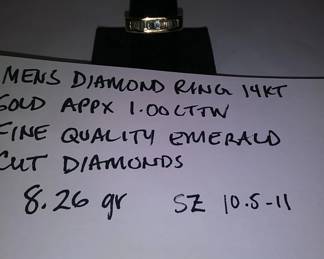 MENS DIAMOND RING 14KT
GOLD APPX 1.00CTTW
FINE QUALITY EMERALD
CUT DIAMONDS
8.26 gr SZ 10.5-11